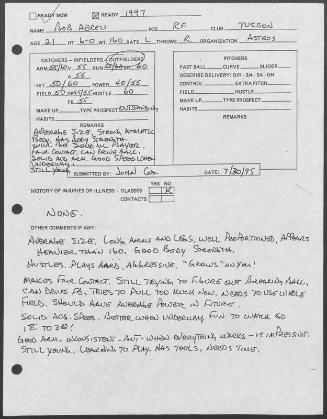 READY NOW ☒ READY 1997
BOB ABREU POS RF CLUB TUCSON
AGE 21 HT 6-0 WT 160 BATS L THROWS R ORGANIZATION ASTROS
CATCHERS - INFIELDERS - OUTFIELDERS
PITCHERS
ARM 55/60 55 RUN 60
FAST BALL CURVE SLIDER
55
DESCRIBE DELIVERY: O/H - 3/4 - SA - U/H
HIT 50/60 55 POWER 40/55
CONTROL EXTRA PITCH
FIELD 50 55 HUSTLE 60
FIELD HUSTLE
FB 55
MAKE UP TYPE PROSPECT
MAKE UP TYPE PROSPECT
HABITS
HABITS
REMARKS
REMARKS
AVERAGE SIZE, STRONG, ATHLETIC
BODY. HAS BODY STRENGTH
WILL BE SOLID ALL PLAYER.
FAIR CONTACT, CAN DRIVE BALL.
SOLID AVG ARM. GOOD SPEED WHEN
UNDERWAY.
STILL YOUNG
SUBMITTED BY: JOHN COX DATE: 7/30/95
YES NO
HISTORY OF INJURIES OR ILLNESS - GLASSES X
CONTACTS
NONE.
OTHER COMMENTS IF ANY:
AVERAGE SIZE, LONG ARMS AND LEGS, WELL PROPORTIONED, APPEARS
HEAVIER THAN 160. GOOD BODY STRENGTH.
HUSTLES. PLAYS HARD, AGGRESSIVE. "GROWS" ON YOU!
MAKES FAIR CONTACT. STILL TRYING TO FIGURE OUT BREAKING BALL,
CAN DRIVE FB. TRIES TO PULL TOO MUCH NOW. NEEDS TO USE WHOLE
FIELD. SHOULD HAVE AVERAGE POWER, IN FUTURE.
SOLID AVG. SPEED - BETTER WHEN UNDERWAY FUN TO WATCH GO
1ST TO 3RD!
GOOD ARM - INCONSISTENT - BUT - WHEN EVERYTHING WORKS - IS IMPRESSIVE.
STILL YOUNG. LEARNING TO PLAY. HAS TOOLS, NEEDS TIME.